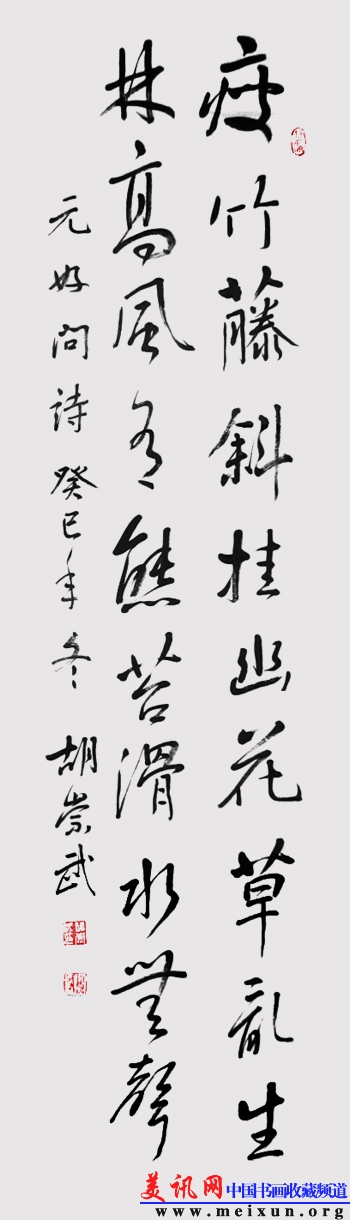 瘦竹藤斜挂幽花草亂生
林高風有態苔滑水無聲
元好問詩癸巳年冬胡崇武
美讯网中国书画收藏频道
www.meixun.org